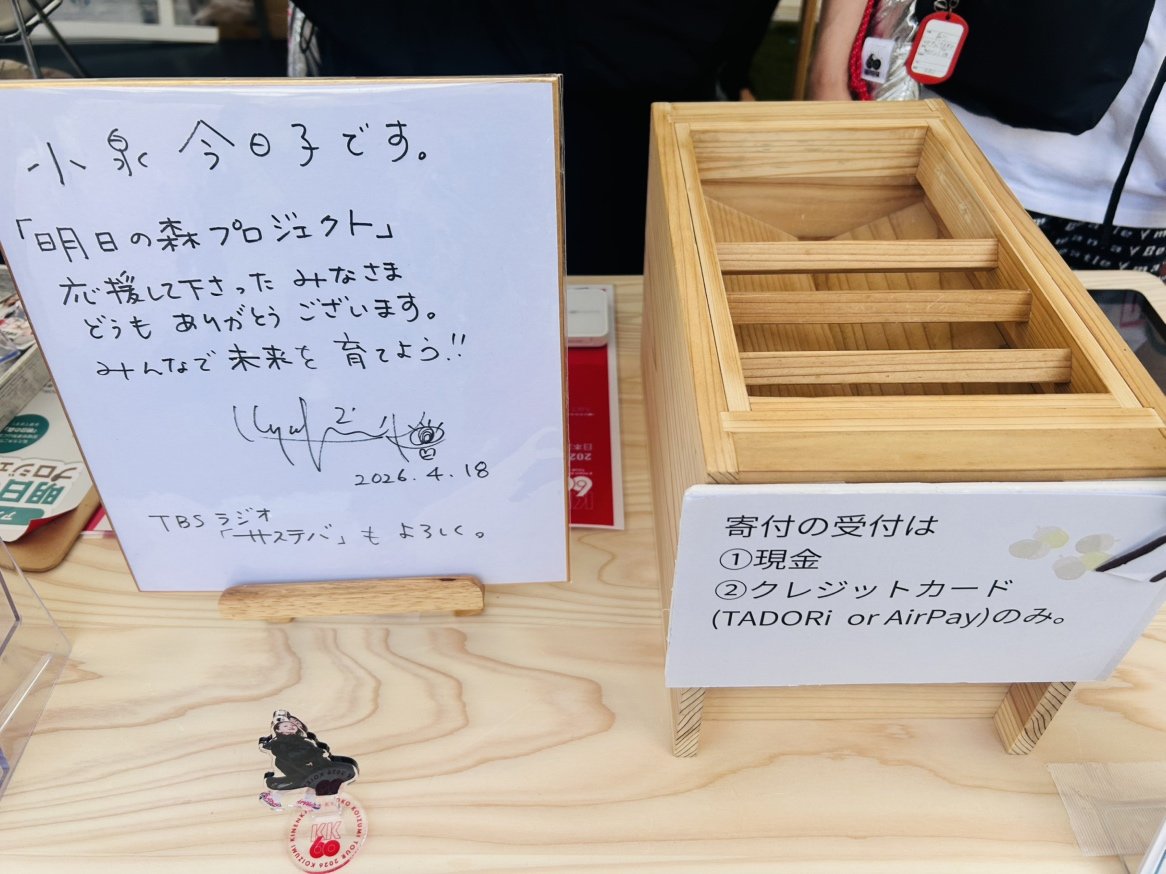 小泉今日子です。
「明日の森プロジェクト」
応援して下さった みなさま
どうも ありがとう ございます。
みんなで 未来を 育てよう!!
2026.4.18
TBSラジオ
「サステバ」も よろしく。
寄付の受付は
①現金
②クレジットカード
(TADORi or AirPay)のみ。
明日
プロジェ
KK
60